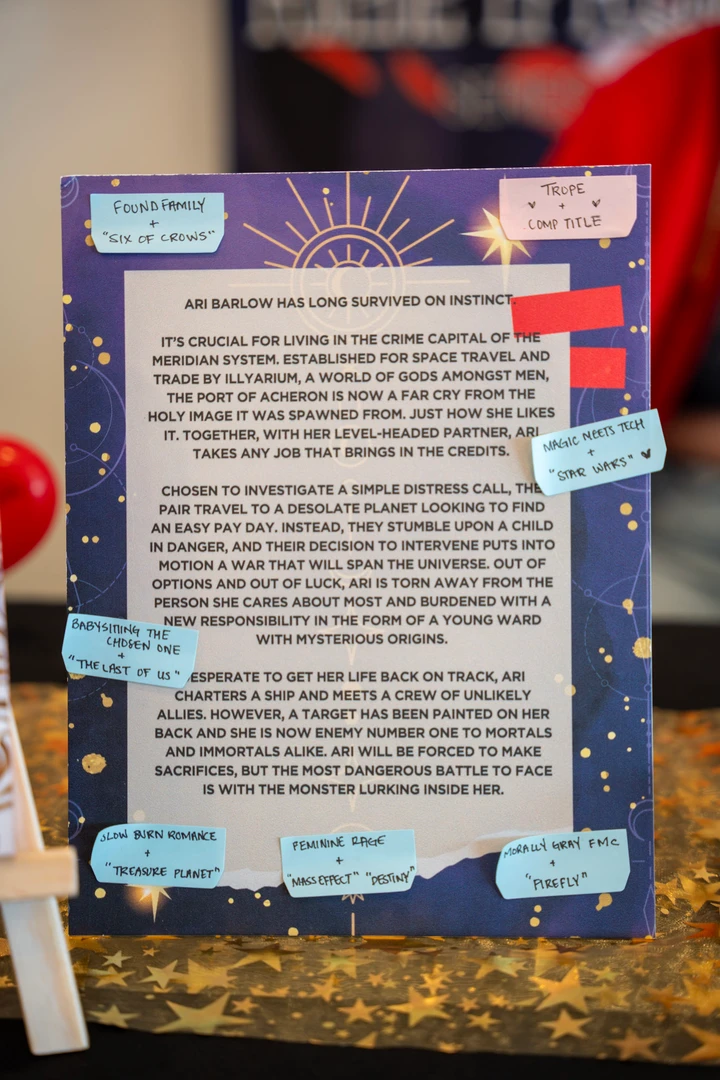 FOUND FAMILY
+
"SIX OF CROWS"
TROPE
+
COMP TITLE
ARI BARLOW HAS LONG SURVIVED ON INSTINCT.
IT'S CRUCIAL FOR LIVING IN THE CRIME CAPITAL OF THE
MERIDIAN SYSTEM. ESTABLISHED FOR SPACE TRAVEL AND
TRADE BY ILLYARIUM, A WORLD OF GODS AMONGST MEN,
THE PORT OF ACHERON IS NOW A FAR CRY FROM THE
HOLY IMAGE IT WAS SPAWNED FROM. JUST HOW SHE LIKES
IT. TOGETHER, WITH HER LEVEL-HEADED PARTNER, ARI
TAKES ANY JOB THAT BRINGS IN THE CREDITS.
MAGIC MEETS TECH
+
"STAR WARS"
CHOSEN TO INVESTIGATE A SIMPLE DISTRESS CALL, THE
PAIR TRAVEL TO A DESOLATE PLANET LOOKING TO FIND
AN EASY PAY DAY. INSTEAD, THEY STUMBLE UPON A CHILD
IN DANGER, AND THEIR DECISION TO INTERVENE PUTS INTO
MOTION A WAR THAT WILL SPAN THE UNIVERSE. OUT OF
OPTIONS AND OUT OF LUCK, ARI IS TORN AWAY FROM THE
PERSON SHE CARES ABOUT MOST AND BURDENED WITH A
NEW RESPONSIBILITY IN THE FORM OF A YOUNG WARD
WITH MYSTERIOUS ORIGINS.
BABYSITTING THE
CHOSEN ONE
+
"THE LAST OF US"
ESPERATE TO GET HER LIFE BACK ON TRACK, ARI
CHARTERS A SHIP AND MEETS A CREW OF UNLIKELY
ALLIES. HOWEVER, A TARGET HAS BEEN PAINTED ON HER
BACK AND SHE IS NOW ENEMY NUMBER ONE TO MORTALS
AND IMMORTALS ALIKE. ARI WILL BE FORCED TO MAKE
SACRIFICES, BUT THE MOST DANGEROUS BATTLE TO FACE
IS WITH THE MONSTER LURKING INSIDE HER.
SLOW BURN ROMANCE
+
"TREASURE PLANET"
FEMININE RAGE
+
"MASS EFFECT" "DESTINY"
MORALLY GRAY FMC
+
"FIREFLY"